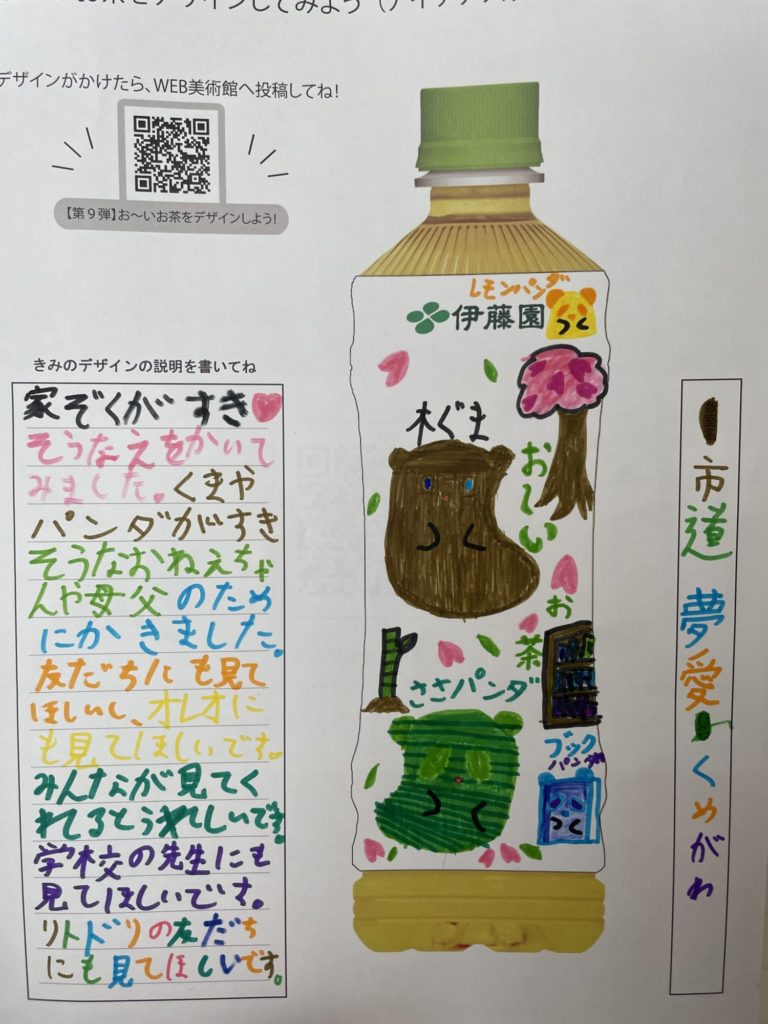 お茶をデザインしてみよう
デザインがかけたら、WEB美術館へ投稿してね！
【第９弾】お～いお茶をデザインしよう！
きみのデザインの説明を書いてね
家ぞくがすき
そうなえをかいて
みました。くまや
パンダがすき
そうなおねえちゃ
んや母父のため
にかきました。
友だちにも見て
ほしいし、オレオに
も見てほしいです。
みんなが見てく
れてるとうれしいです。
学校の先生にも
見てほしいです。
リトドリの友だち
にも見てほしいです。
レモンパンダ
伊藤園
木ぐま
お～い
お
茶
ささパンダ
ブック
パンダ
市道 夢愛
くめがわ